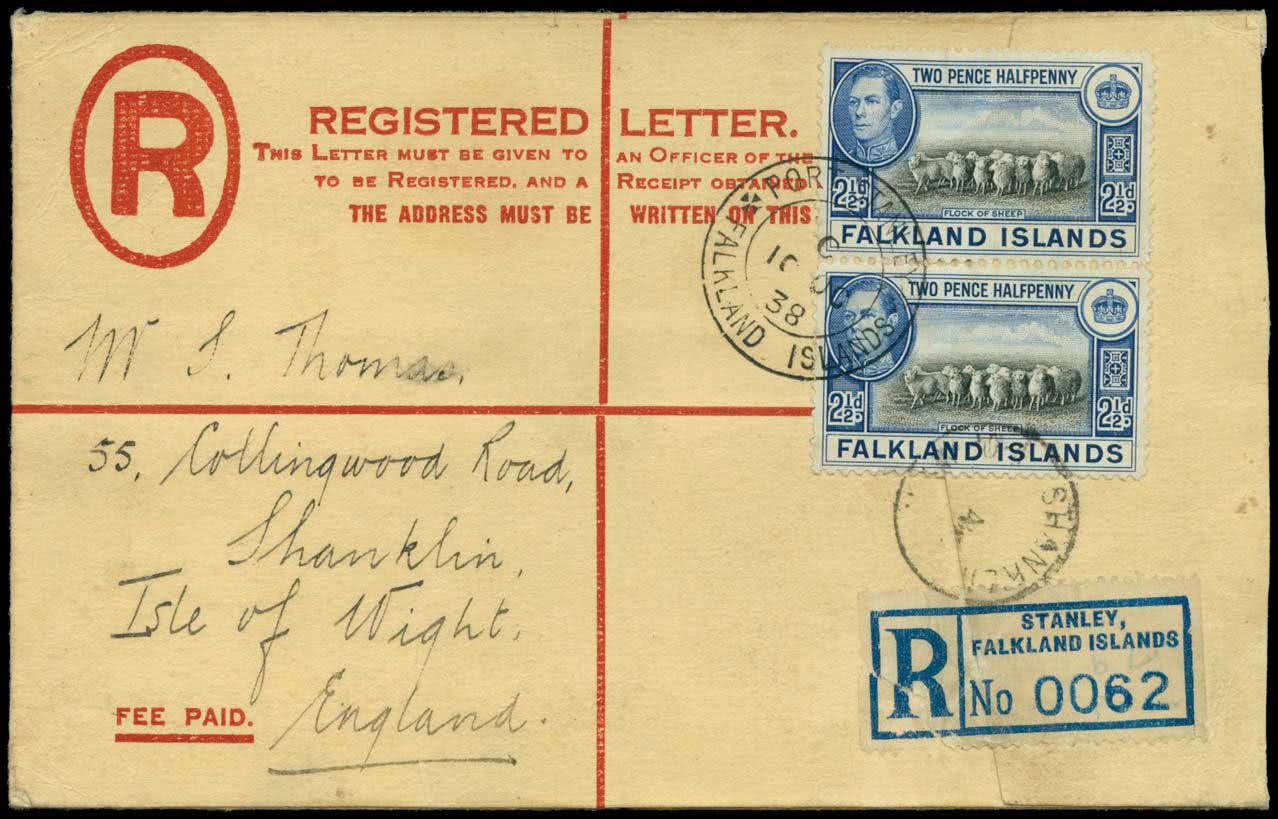 R
REGISTERED LETTER.
THIS LETTER MUST BE GIVEN TO AN OFFICER OF THE
TO BE REGISTERED, AND A RECEIPT OBTAINED
THE ADDRESS MUST BE WRITTEN ON THIS
TWO PENCE HALFPENNY
2½d 2½d
FLOCK OF SHEEP
FALKLAND ISLANDS
TWO PENCE HALFPENNY
2½d 2½d
FLOCK OF SHEEP
FALKLAND ISLANDS
PORT
38
FALKLAND ISLANDS
Mr S. Thomas,
55, Collingwood Road,
Shanklin,
Isle of Wight,
England.
FEE PAID.
R
STANLEY,
FALKLAND ISLANDS
No 0062